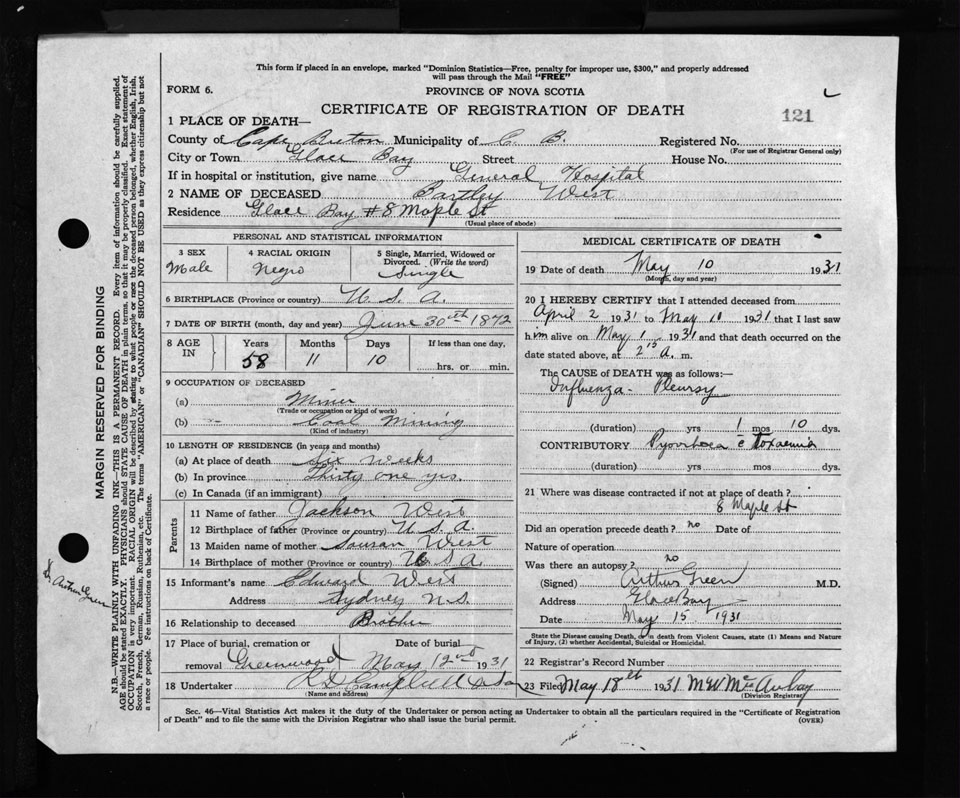 This form if placed in an envelope, marked "Dominion Statistics—Free, penalty for improper use, $300," and properly addressed
will pass through the Mail "FREE"
FORM 6.
PROVINCE OF NOVA SCOTIA
CERTIFICATE OF REGISTRATION OF DEATH
121
1 PLACE OF DEATH—
County of Cape Breton Municipality of C. B. Registered No.
(For use of Registrar General only)
City or Town Glace Bay Street House No.
If in hospital or institution, give name General Hospital
2 NAME OF DECEASED Bartley West
Residence Glace Bay #8 Maple St
(Usual place of abode)
PERSONAL AND STATISTICAL INFORMATION
3 SEX
Male
4 RACIAL ORIGIN
Negro
5 Single, Married, Widowed or
Divorced. (Write the word)
Single
6 BIRTHPLACE (Province or country) U. S. A.
7 DATE OF BIRTH (month, day and year) June 30th 1872
8 AGE IN
Years Months Days If less than one day,
58 11 10 hrs. or min.
9 OCCUPATION OF DECEASED
(a) Miner
(Trade or occupation or kind of work)
(b) Coal Mining
(Kind of industry)
10 LENGTH OF RESIDENCE (in years and months)
(a) At place of death Six weeks
(b) In province Thirty one yrs.
(c) In Canada (if an immigrant)
Parents
11 Name of father Jackson West
12 Birthplace of father (Province or country) U. S. A.
13 Maiden name of mother Sousan West
14 Birthplace of mother (Province or country) U S A.
15 Informant's name Edward West
Address Sydney N.S.
16 Relationship to deceased Brother
17 Place of burial, cremation or Date of burial
removal Greenwood May 12nd 1931
18 Undertaker Campbell & Son
(Name and address)
MEDICAL CERTIFICATE OF DEATH
19 Date of death May 10 1931
(Month, day and year)
20 I HEREBY CERTIFY that I attended deceased from
April 2 1931 to May 10 1931 that I last saw
him alive on May 1 1931 and that death occurred on the
date stated above, at 2 15 A. m.
The CAUSE of DEATH was as follows:—
Influenza - Pleursy
(duration) yrs 1 mos 10 dys.
CONTRIBUTORY Pyorrhoea c Toxaemia
(duration) yrs mos dys.
21 Where was disease contracted if not at place of death?
8 Maple St
Did an operation precede death? no Date of
Nature of operation
Was there an autopsy? no
(Signed) Arthur Green M.D.
Address Glace Bay
Date May 15 1931
State the Disease causing Death, or in death from Violent Causes, state (1) Means and Nature
of Injury, (2) whether Accidental, Suicidal or Homicidal.
22 Registrar's Record Number
23 Filed May 18th 1931
(Division Registrar)
Sec. 46—Vital Statistics Act makes it the duty of the Undertaker or person acting as Undertaker to obtain all the particulars required in the "Certificate of Registration
of Death" and to file the same with the Division Registrar who shall issue the burial permit.
(OVER)
MARGIN RESERVED FOR BINDING
N.B.—WRITE PLAINLY WITH UNFADING INK—THIS IS A PERMANENT RECORD. Every item of information should be carefully supplied.
AGE should be stated EXACTLY. PHYSICIANS should STATE CAUSE OF DEATH in plain terms, so that it may be properly classified. Exact statement of
OCCUPATION is very important. RACIAL ORIGIN will be described by stating to what people or race the deceased person belonged, whether English, Irish,
Scotch, French, German, Russian, Ruthenian, etc. The terms "AMERICAN" or "CANADIAN" SHOULD NOT BE USED as they express citizenship but not
a race or people. Fee instructions on back of Certificate.
Dr. Arthur Green